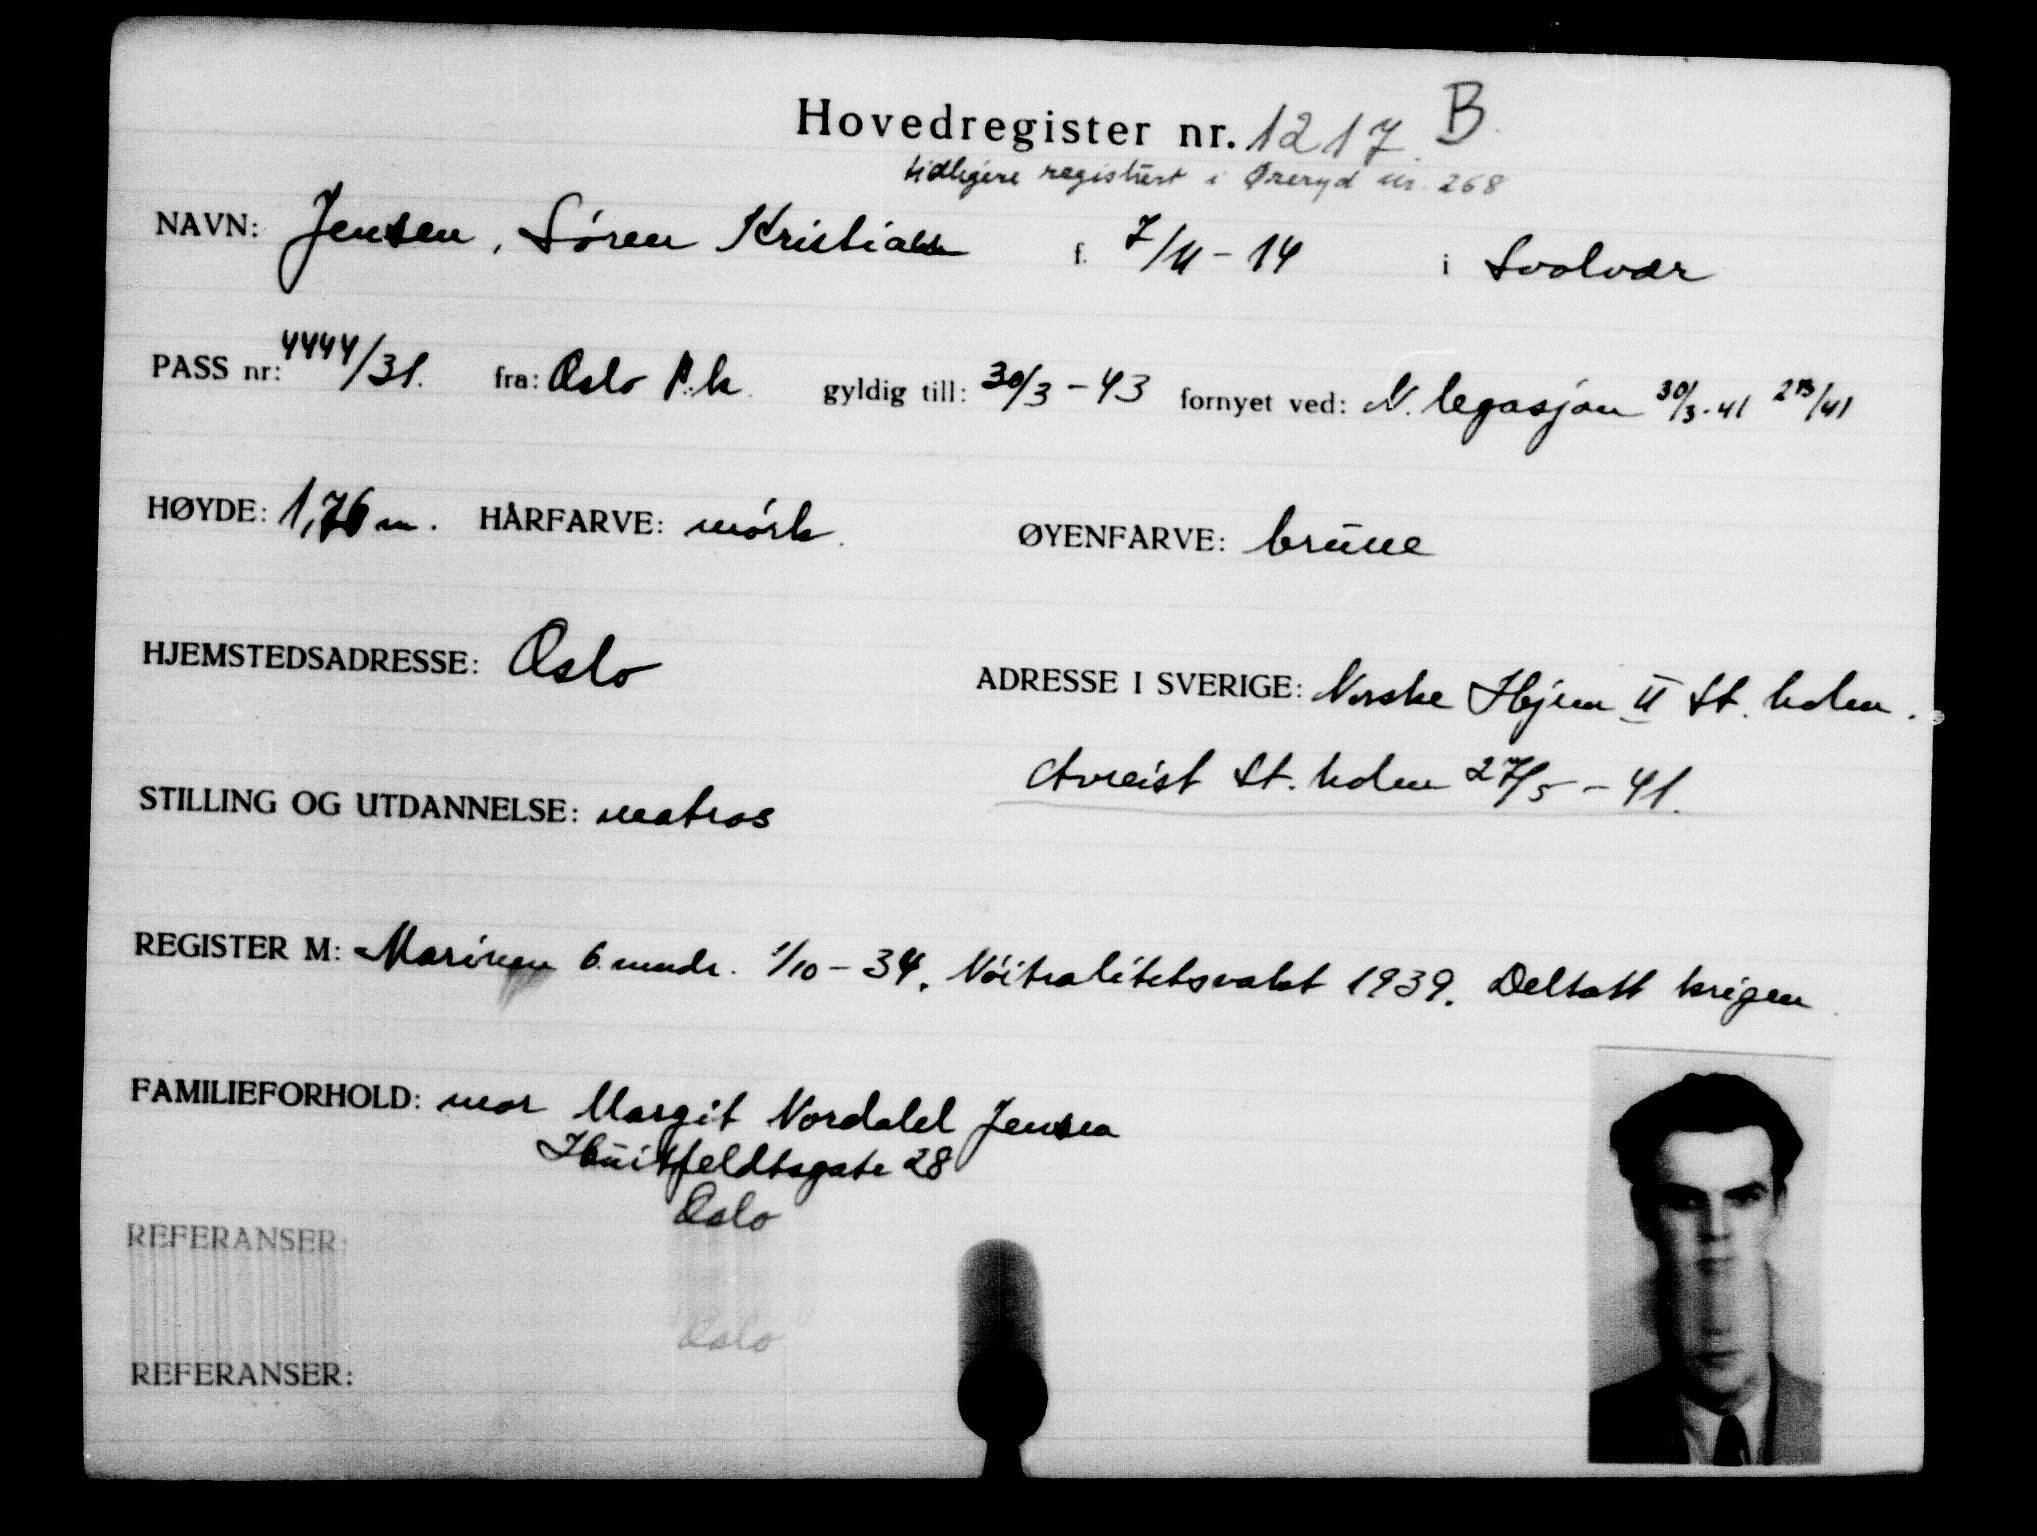 Hovedregister nr. 1217 B
tidligere registrert i Øreryd nr. 268
NAVN: Jensen, Søren Kristian f. 7/11-14 i Svolvær
PASS nr: 4444/31. fra: Oslo P.k. gyldig till: 30/3-43 fornyet ved: N. legasjon 30/3-41
HØYDE: 1,76 m. HÅRFARVE: mørk. ØYENFARVE: brune
HJEMSTEDSADRESSE: Oslo ADRESSE I SVERIGE: Norske Hjem II St. holm.
Avreist St. holm 27/5-41.
STILLING OG UTDANNELSE: matros
REGISTER M: Marinen 6 mndr. 1/10-34. Nøitralitetsvakt 1939. Deltatt krigen
FAMILIEFORHOLD: mor Margit Nordahl Jensen
Huitfeldtsgate 28
Oslo
REFERANSER:
Oslo
REFERANSER: